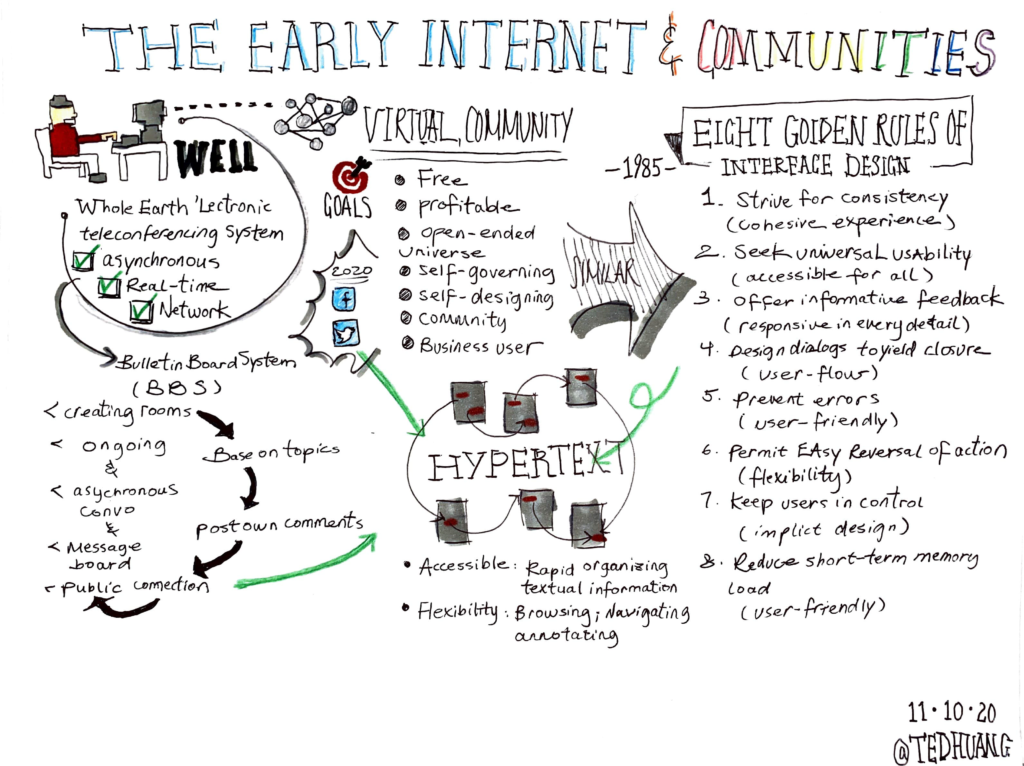 THE EARLY INTERNET & COMMUNITIES
WELL
Whole Earth 'Lectronic
teleconferencing System
asynchronous
Real-time
Network
Bulletin Board System
(BBS)
< creating rooms
< ongoing
&
< asychronous
convo
&
< Message
board
- Public connection
Base on topics
post own comments
VIRTUAL COMMUNITY
GOALS
• Free
• profitable
• open-ended
universe
• self-governing
• self-designing
• community
• Business user
2020
f
SIMILAR
HYPERTEXT
• Accessible: Rapid organizing
textual information
• Flexibility: Browsing; Navigating
annotating
-1985-
EIGHT GOLDEN RULES OF
INTERFACE DESIGN
1. Strive for consistency
(cohesive experience)
2. Seek universal usability
(accessible for all)
3. Offer informative feedback
(responsive in every detail)
4. Design dialogs to yield closure
(user-flow)
5. Prevent errors
(user-friendly)
6. Permit EAsy Reversal of action
(flexibility)
7. Keep users in control
(implict design)
8. Reduce short-term memory
load
(user-friendly)
11·10·20
@TEDHUANG